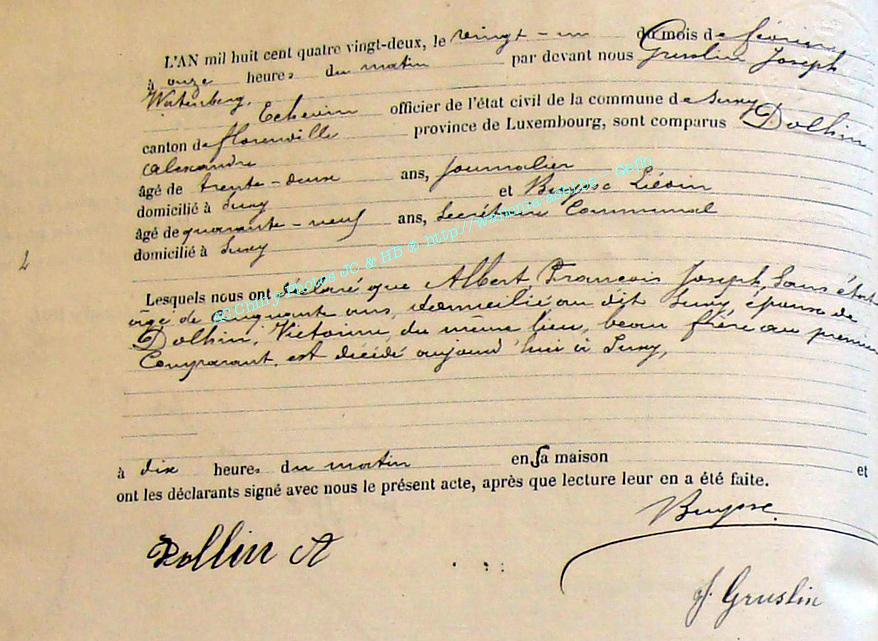 L'AN mil huit cent quatre vingt-deux, le vingt-un du mois de février
à onze heures du matin par devant nous Gruslin Joseph
Echevin officier de l'état civil de la commune de Suxy
canton de florenville province de Luxembourg, sont comparus Dolhin
Alexandre
âgé de trente-deux ans, Journalier
domicilié à Suxy et Buysse Liévin
âgé de quarante-neuf ans, Secrétaire Communal
domicilié à Suxy
Lesquels nous ont déclaré que Albert François Joseph, Sans état
âgé de cinquante ans, domicilié au dit Suxy époux de
Dolhin, Victorine, du même lieu, beau frère au premier
Comparant, est décédé aujourd'hui à Suxy,
à dix heures du matin en Sa maison et
ont les déclarants signé avec nous le présent acte, après que lecture leur en a été faite.
Buysse
Dollin A
J. Gruslin